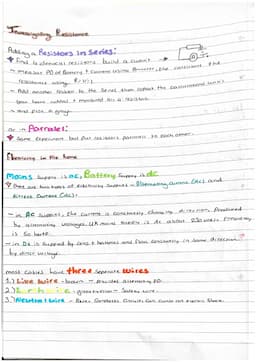 Investigating Resistance
Adding Resistors in Series:
Find identical resistors, build a circuit
measure PD of Battery + Current using Ammeter, then calculate the
resistance using R=V/I
Add another resistor to the series then repeat the
you have added + measured all resistors.
and Plot a graph.
or in Parallel:
Same experiment but Put resistors parallel to each other.
Electricity in the home
Mains Supply is ac, Battery Supply is dc
There are two types of electricity supplies - Alternating current (Ac) and
Direct Current (dc).
- in AC supplies, the current is constantly changing direction. Produced
by alternating voltages. UK mains supply is ac about 230 volts. Frequency
is 50 hertz.
- in DC is supplied by cells + batteries and flows constantly in same direction
by direct voltage.
most cables have three separate wires
1.) Live wire - brown - Provides alternating PD.
2.) Earth wire - green + yellow - Safety wire.
3.) Neutral wire - Blue